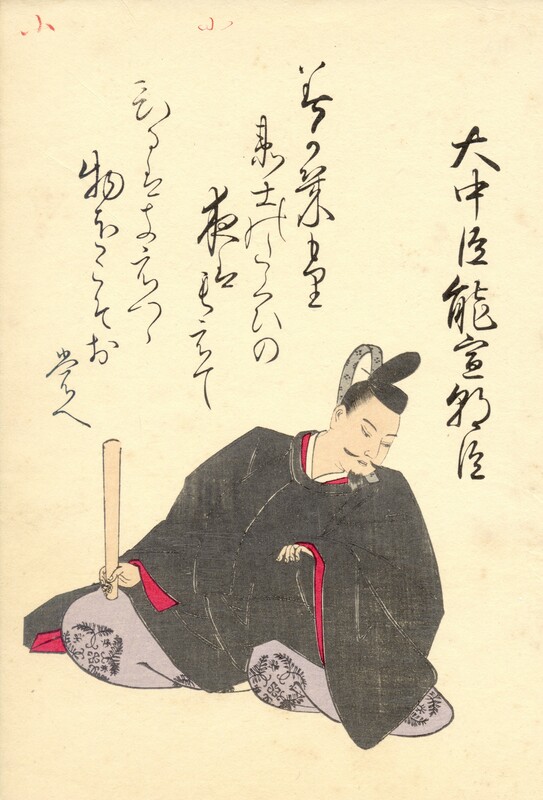 大中臣能宣朝臣
みかきもり
衛士のたくひの
夜はもえて
ひるはきえつゝ
物をこそお
もへ